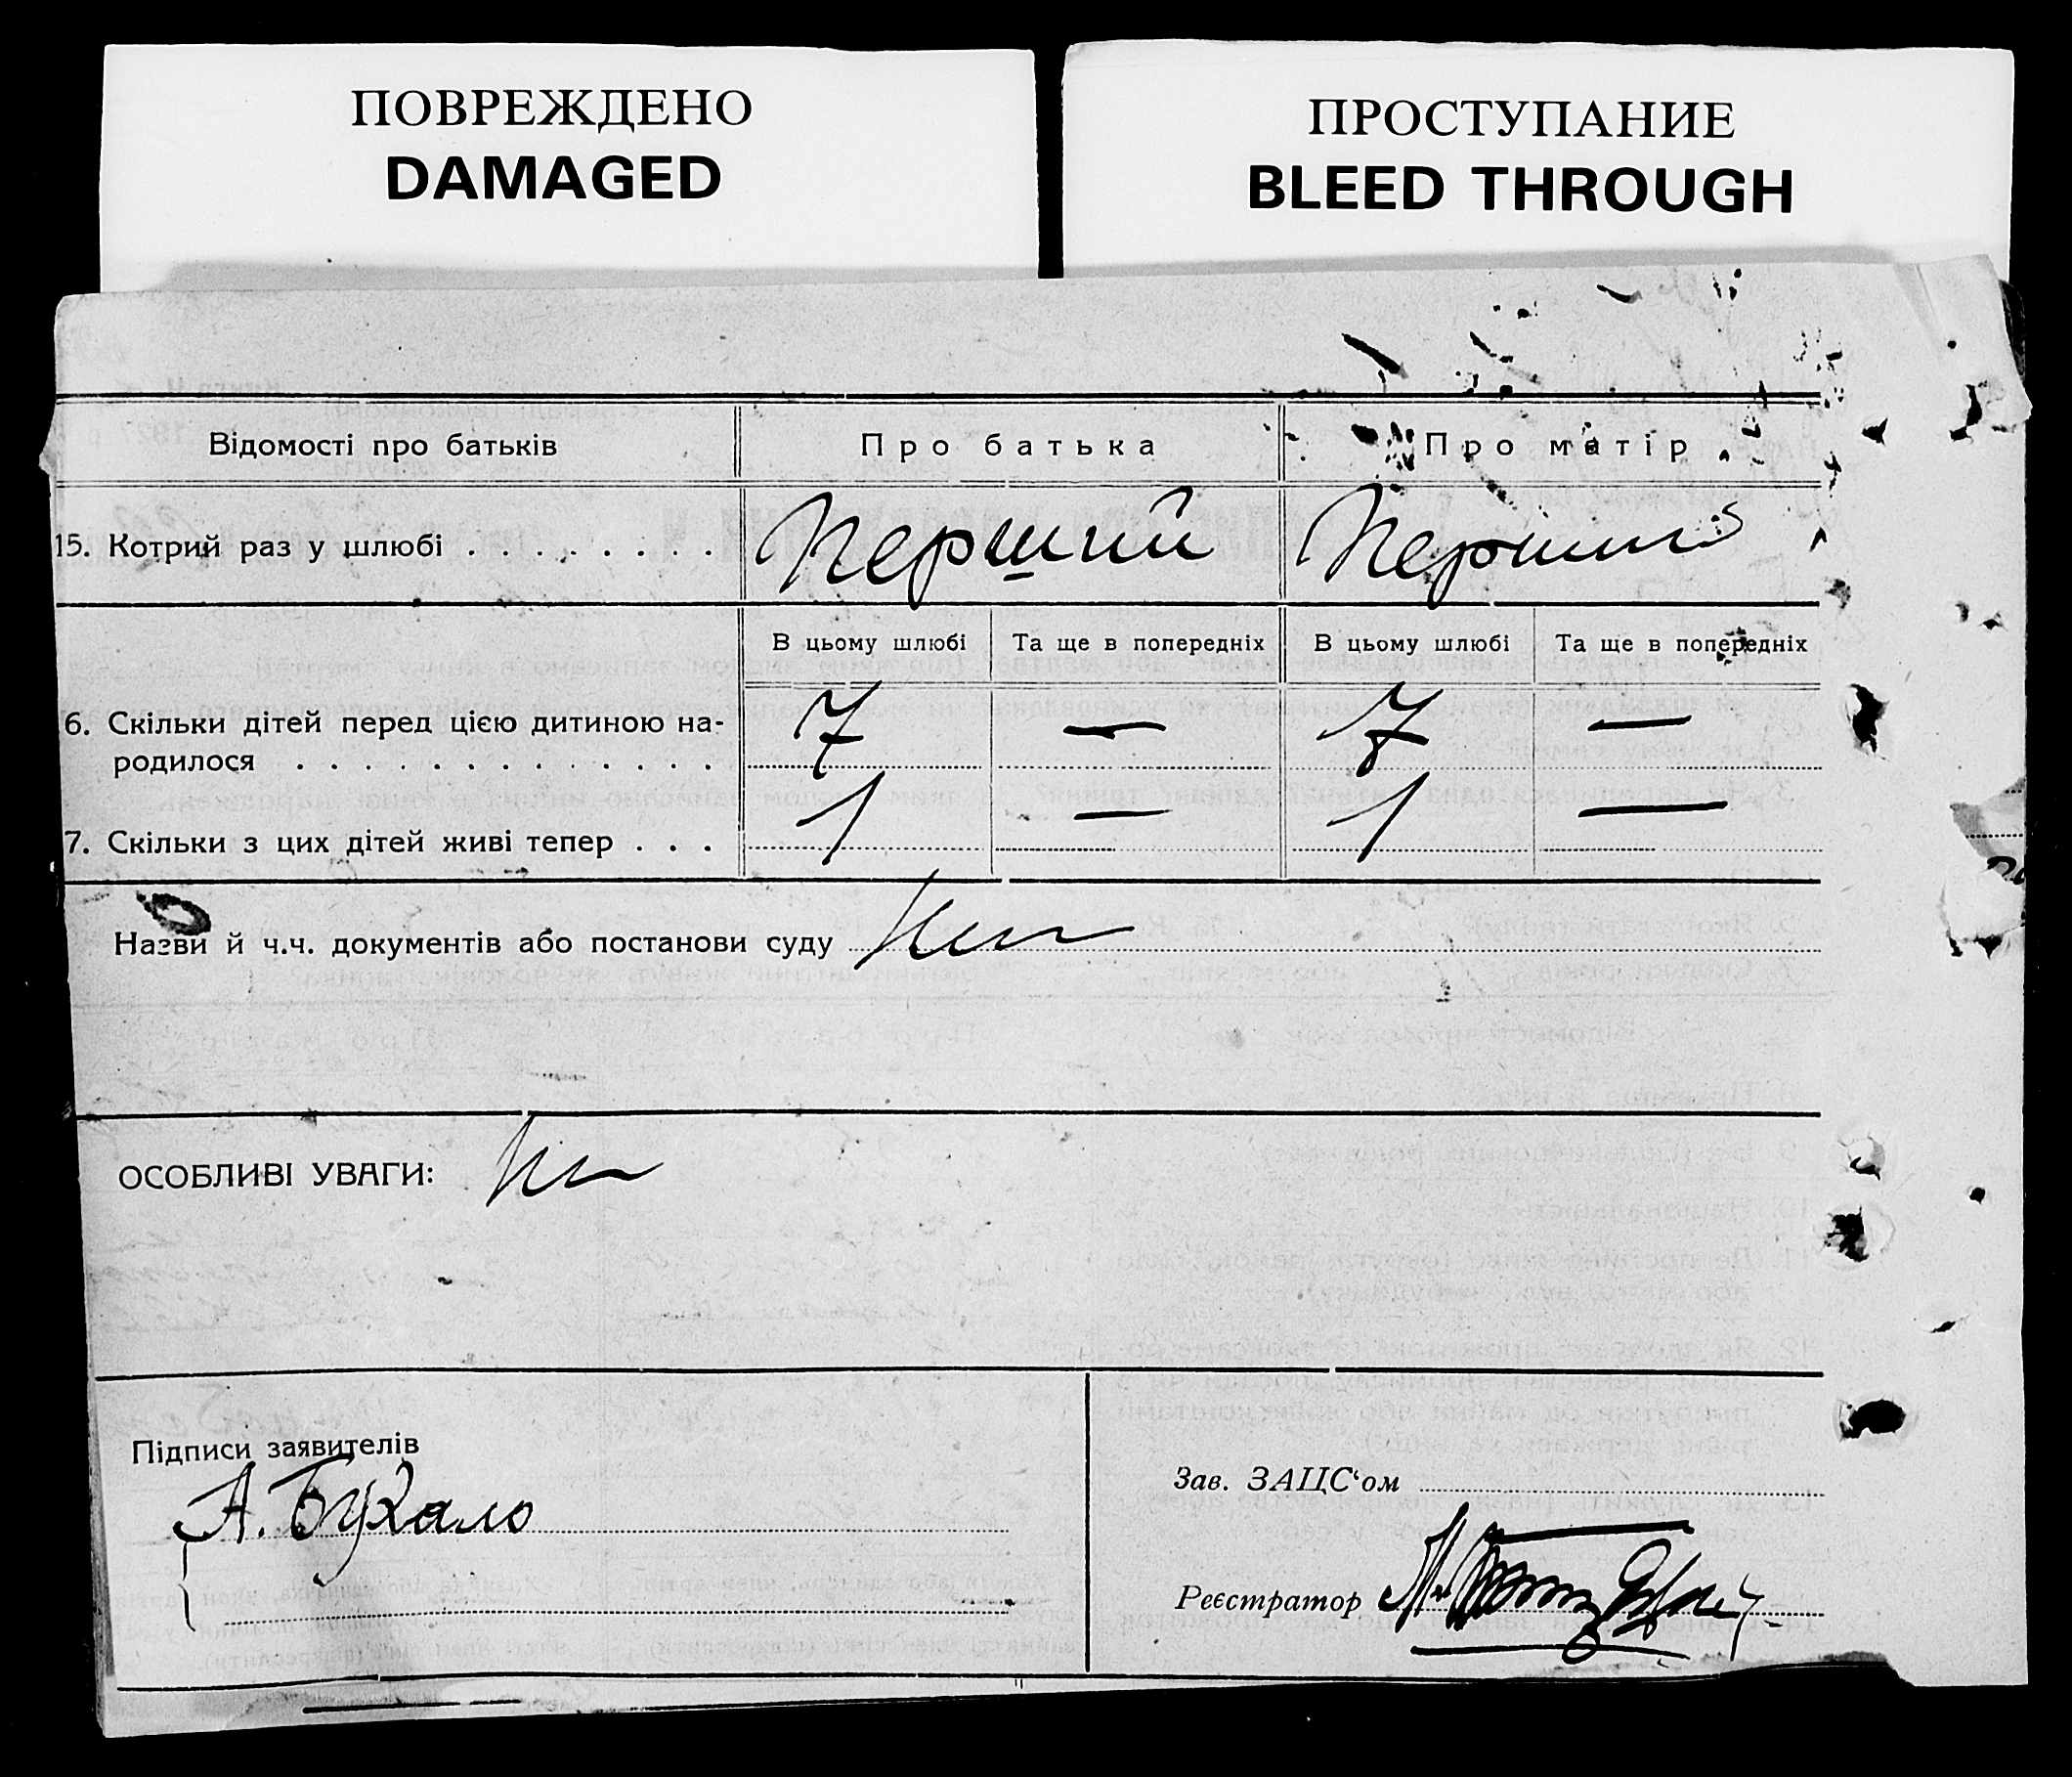 ПОВРЕЖДЕНО
DAMAGED
ПРОСТУПАНИЕ
BLEED THROUGH
Відомості про батьків
Про батька
Про матір
15. Котрий раз у шлюбі . . . . . . . .
Перший
Перший
В цьому шлюбі
Та ще в попередніх
В цьому шлюбі
Та ще в попередніх
6. Скільки дітей перед цією дитиною на-
родилося . . . . . . . . . . . . .
7
—
7
—
7. Скільки з цих дітей живі тепер . . .
1
—
1
—
Назви й ч.ч. документів або постанови суду
ОСОБЛИВІ УВАГИ:
Підписи заявителів
А. Бухало
Зав. ЗАЦС‘ом
Реєстратор